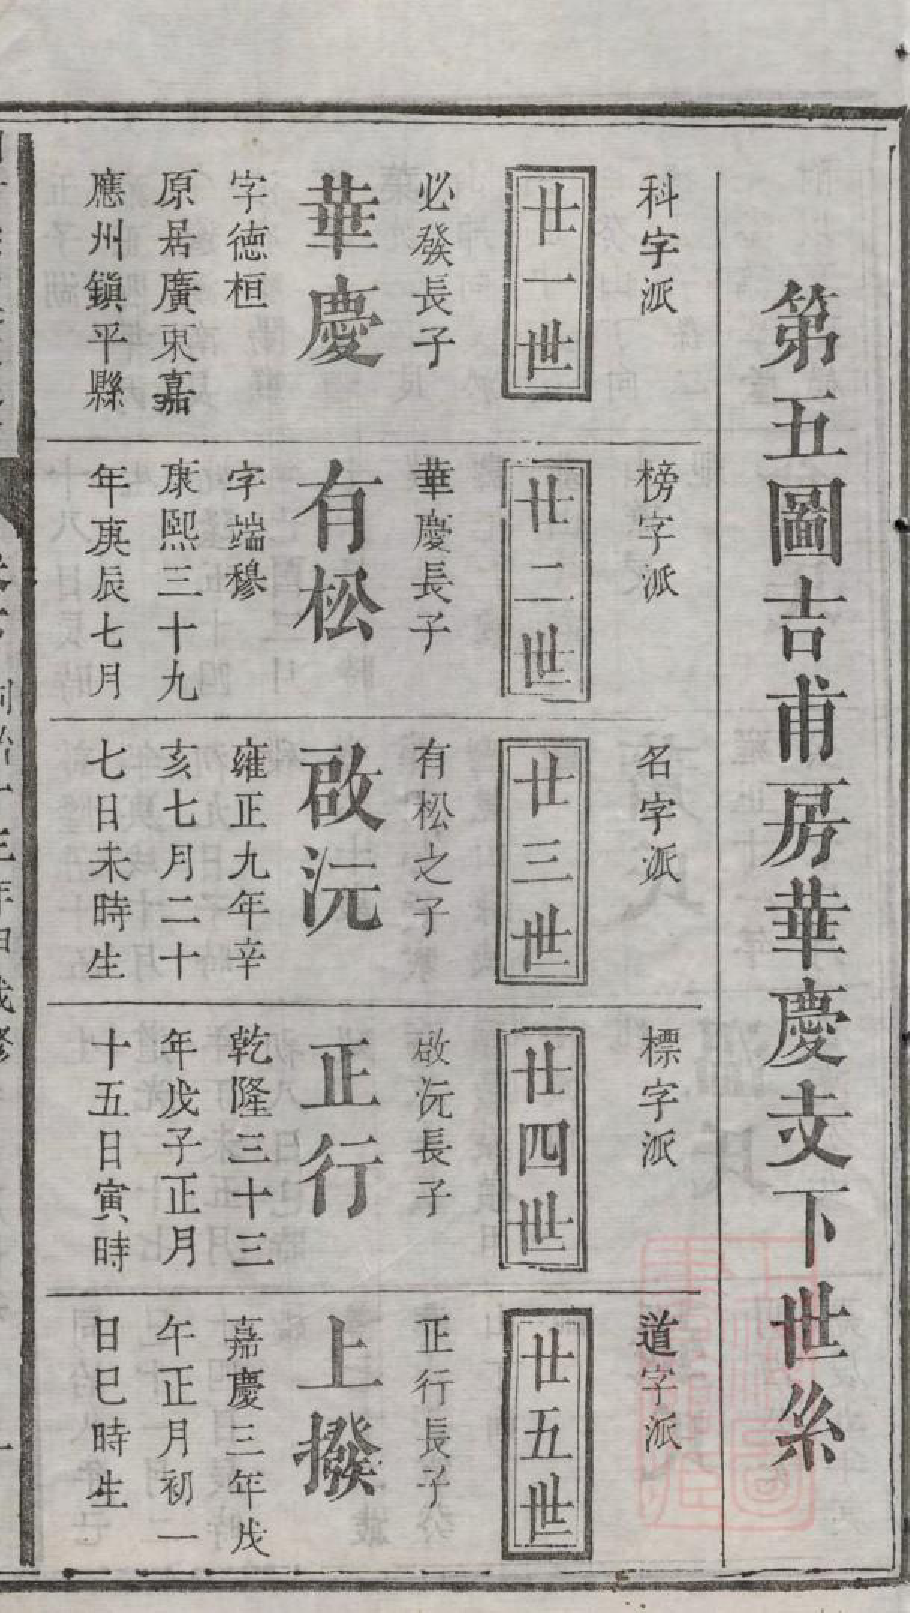 第五圖吉甫房華慶支下世系
科字派
廿一世
必發長子
華慶
字德桓
原居廣東嘉
應州鎮平縣
榜字派
廿二世
華慶長子
有松
字端穆
康熙三十九
年庚辰七月
名字派
廿三世
有松之子
啟沅
雍正九年辛
亥七月二十
七日未時生
標字派
廿四世
啟沅長子
正行
乾隆三十三
年戊子正月
十五日寅時
道字派
廿五世
正行長子
上撥
嘉慶三年戊
午正月初一
日巳時生